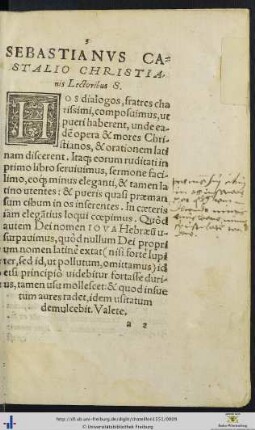 3
SEBASTIANVS CA-
STALIO CHRISTIA-
nis Lectoribus S.
HOs dialogos, fratres cha
rissimi, composuimus, ut
pueri haberent, unde ea-
dē opera & mores Chri-
stianos, & orationem lati
nam discerent. Itaq; eorum ruditati in
primo libro seruiuimus, sermone faci-
limo, eoq; minus eleganti, & tamen la
tino utentes: & pueris quasi præman-
sum cibum in os inserentes. In cæteris
iam elegātius loqui cœpimus. Quòd
autem Dei nomen IOVA Hebræū u-
surpauimus, quòd nullum Dei propri
um nomen latinè extat (nisi forte Iupi
ter, sed id, ut pollutum, omittamus) id
etsi principiò uidebitur fortasse duri-
us, tamen usu mollescet: & quod insue
tum aures radet, idem usitatum
demulcebit. Valete.
a 2
http://dl.ub.uni-freiburg.de/diglit/
© Universitätsbibliothek Freiburg